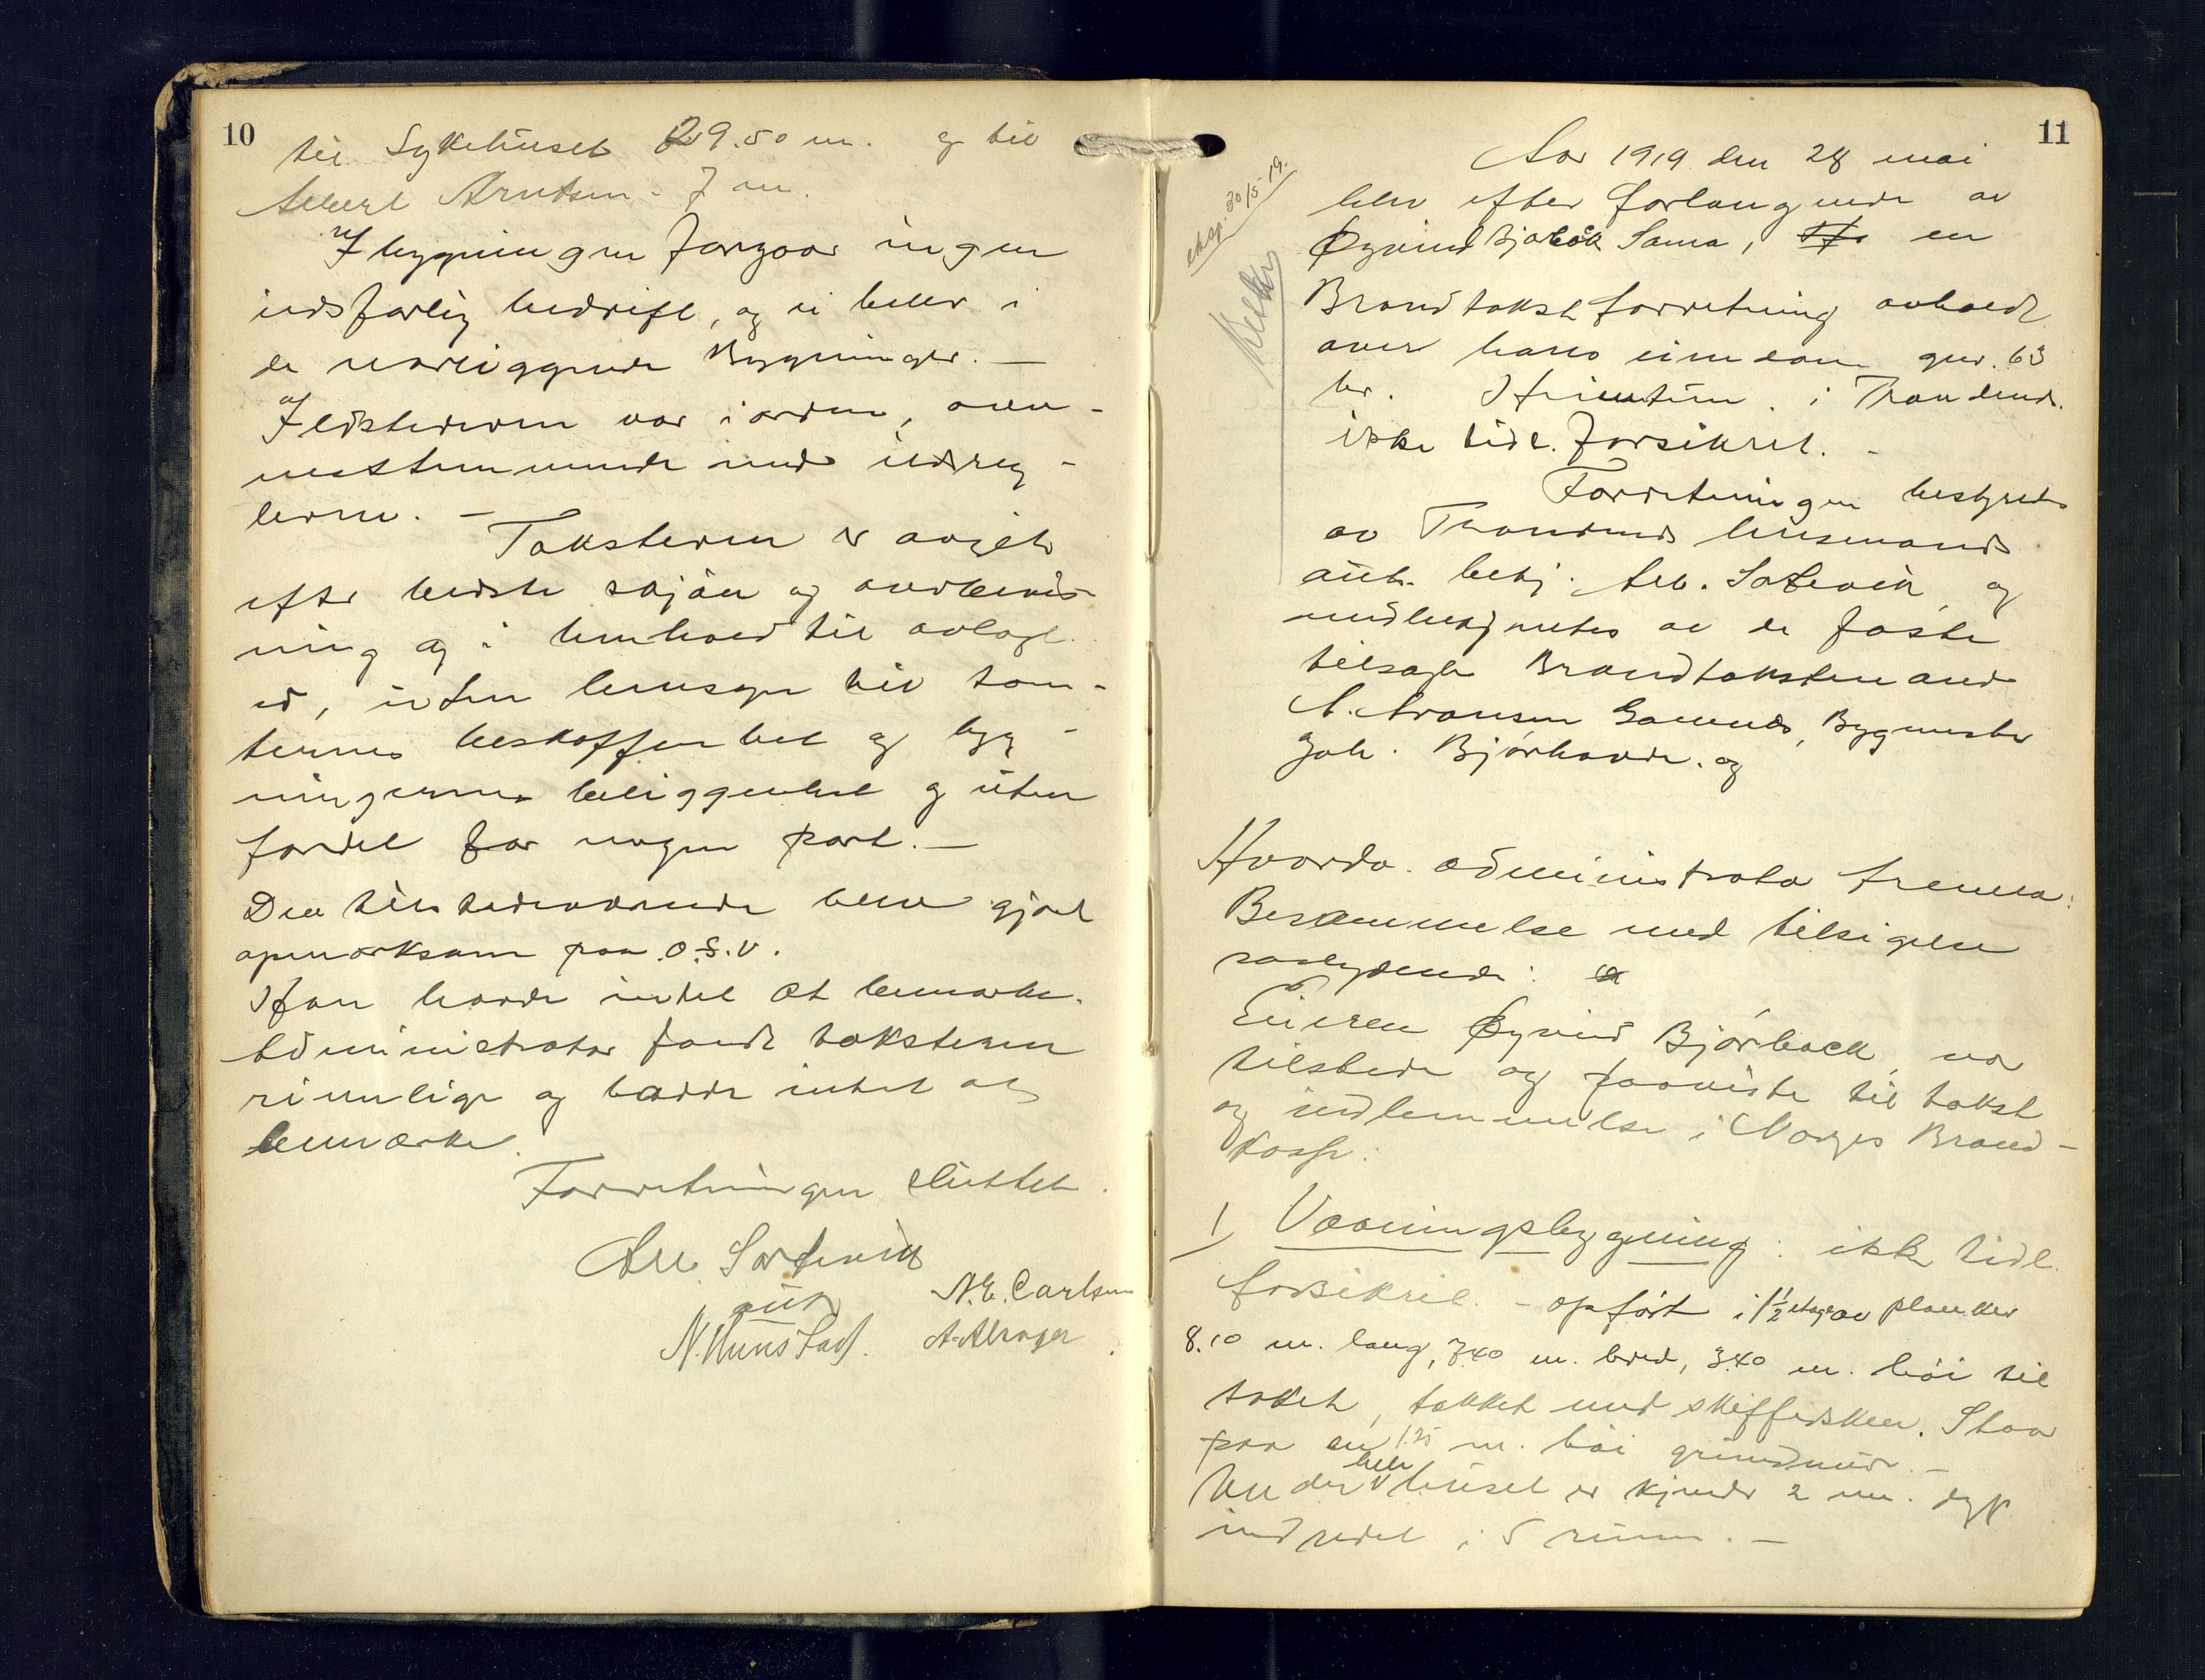 10
til Sykehuset 29.50 m. og til
Albert Arntsen - 7 m.
I bygningen forgaar ingen
ildsfarlig bedrift, og ei heller i
de nærliggende Bygninger. —
Ildstederne var i orden, overens-
stemmende med ildsreg-
lerne. —
Taksterne er avgit
efter bedste skjön og overbevis-
ning og i henhold til avlagt
ed, uten hensyn til tom-
ternes beskaffenhet og byg-
ningernes beliggenhet og uten
fordel for nogen part. —
Den tilstedeværende blev gjort
opmerksom paa o.s.v.
Han havde intet at bemærke.
Administrator fandt taksterne
rimelige og hadde intet at
bemærke.
Forretningen sluttet.
Alb. Sørlevik
aut
N. E. Carlsen
N. Hunstad. A. Abrager
11
eksp. 30/5-19.
Aar 1919 den 28 mai
blev efter forlangende av
Øyvind Bjørbæk Sama, en
Brandtakstforretning avholdt
over hans eiendom gnr. 63
br. i Trondenes.
ikke tidl. forsikret. -
Forretningen bestyredes
av Trondenes lensmands
aut. betj. Alb. Sørlevik og
medbetjentes av de faste
tilsagte Brandtakstmænd
A. Aronsen Gamnes, Bygmester
Joh. Bjørhovde. og
Hvorda administrator fremla:
Berammelse med tilsigelse
saalydende:
Eieren Øyvind Bjørback var
tilstede og paaviste til takst
og indlemmelse i Norges Brand-
kasse:
1) Vaaningsbygning: ikke tidl.
forsikret. - opført i 1 1/2 etage av planker
8.10 m. lang, 7.40 m. bred, 3.40 m. høi til
taket, tækket med skiffedsken. Staar
paa en 1.25 m. høi grundmur. -
Under hele huset er kjelder 2 m. dyp
indredet i 5 rum. —